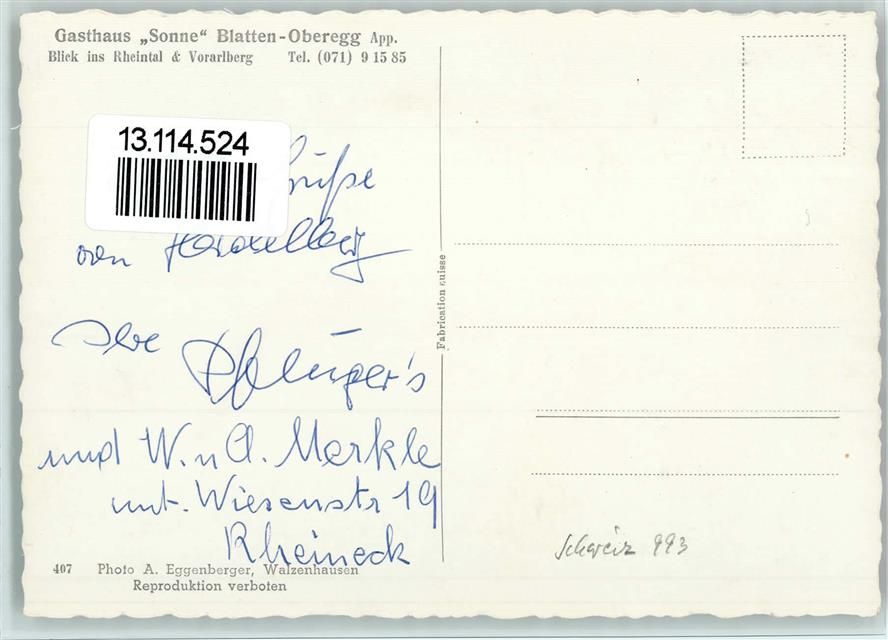 Gasthaus „Sonne“ Blatten-Oberegg App.
Blick ins Rheintal & Vorarlberg Tel. (071) 9 15 85
13.114.524
rüße
von Heidelberg
Ihre Pflüger's
und W. u A. Merkle
unt. Wiesenstr 19
Rheineck
407 Photo A. Eggenberger, Walzenhausen
Reproduktion verboten
Fabrication suisse
Schweiz 993